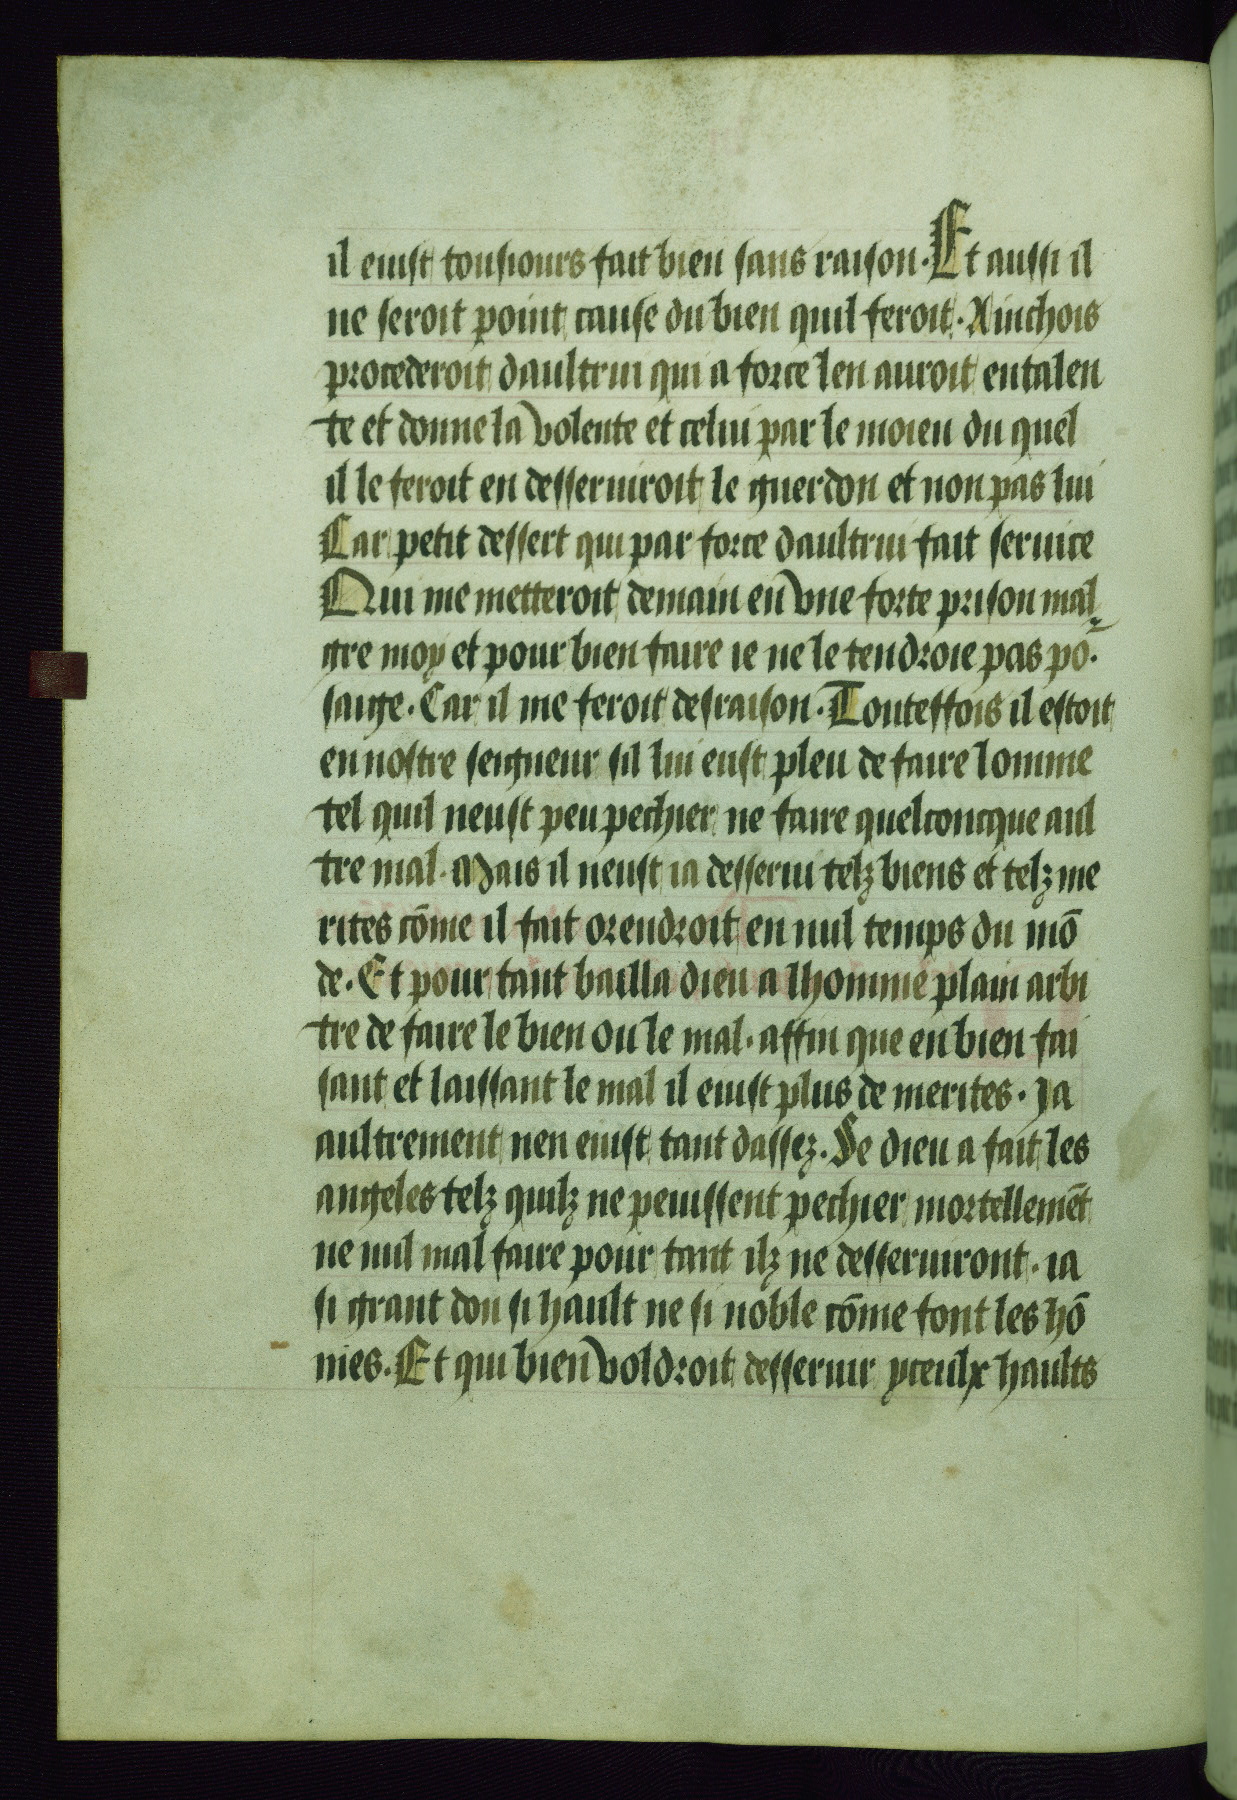 il euist tousiours fait bien sans raison. Et aussi il
ne seroit point cause du bien quil feroit. Ainchois
procederoit daultrui qui a force len auroit entalen
te et donne la volente et celui par le moien du quel
il le feroit en desseruiroit le guerdon et non pas lui
Car petit dessert qui par force daultrui fait seruice
Qui me metteroit demain en vne forte prison mal
gre moy et pour bien faire ie ne le tendroie pas po.
saige. Car il me feroit desraison. Touteffois il estoit
en nostre seigneur sil lui eust pleu de faire lomme
tel quil neust peu pechier ne faire quelconcque aul
tre mal. Mais il neust ia desserui telz biens et telz me
rites cōme il fait orendroit en nul temps du mō
de. Et pour tant bailla dieu a lhomme plain arbi
tre de faire le bien ou le mal. affin que en bien fai
sant et laissant le mal il euist plus de merites. Ja
aultrement nen euist tant dassez. Se dieu a fait les
angeles telz quilz ne peuissent pechier mortellemēt
ne nul mal faire pour tant ilz ne desseruiront. ia
si grant don si hault ne si noble cōme font les hō
mes. Et qui bien voldroit desseruir yceulx haults